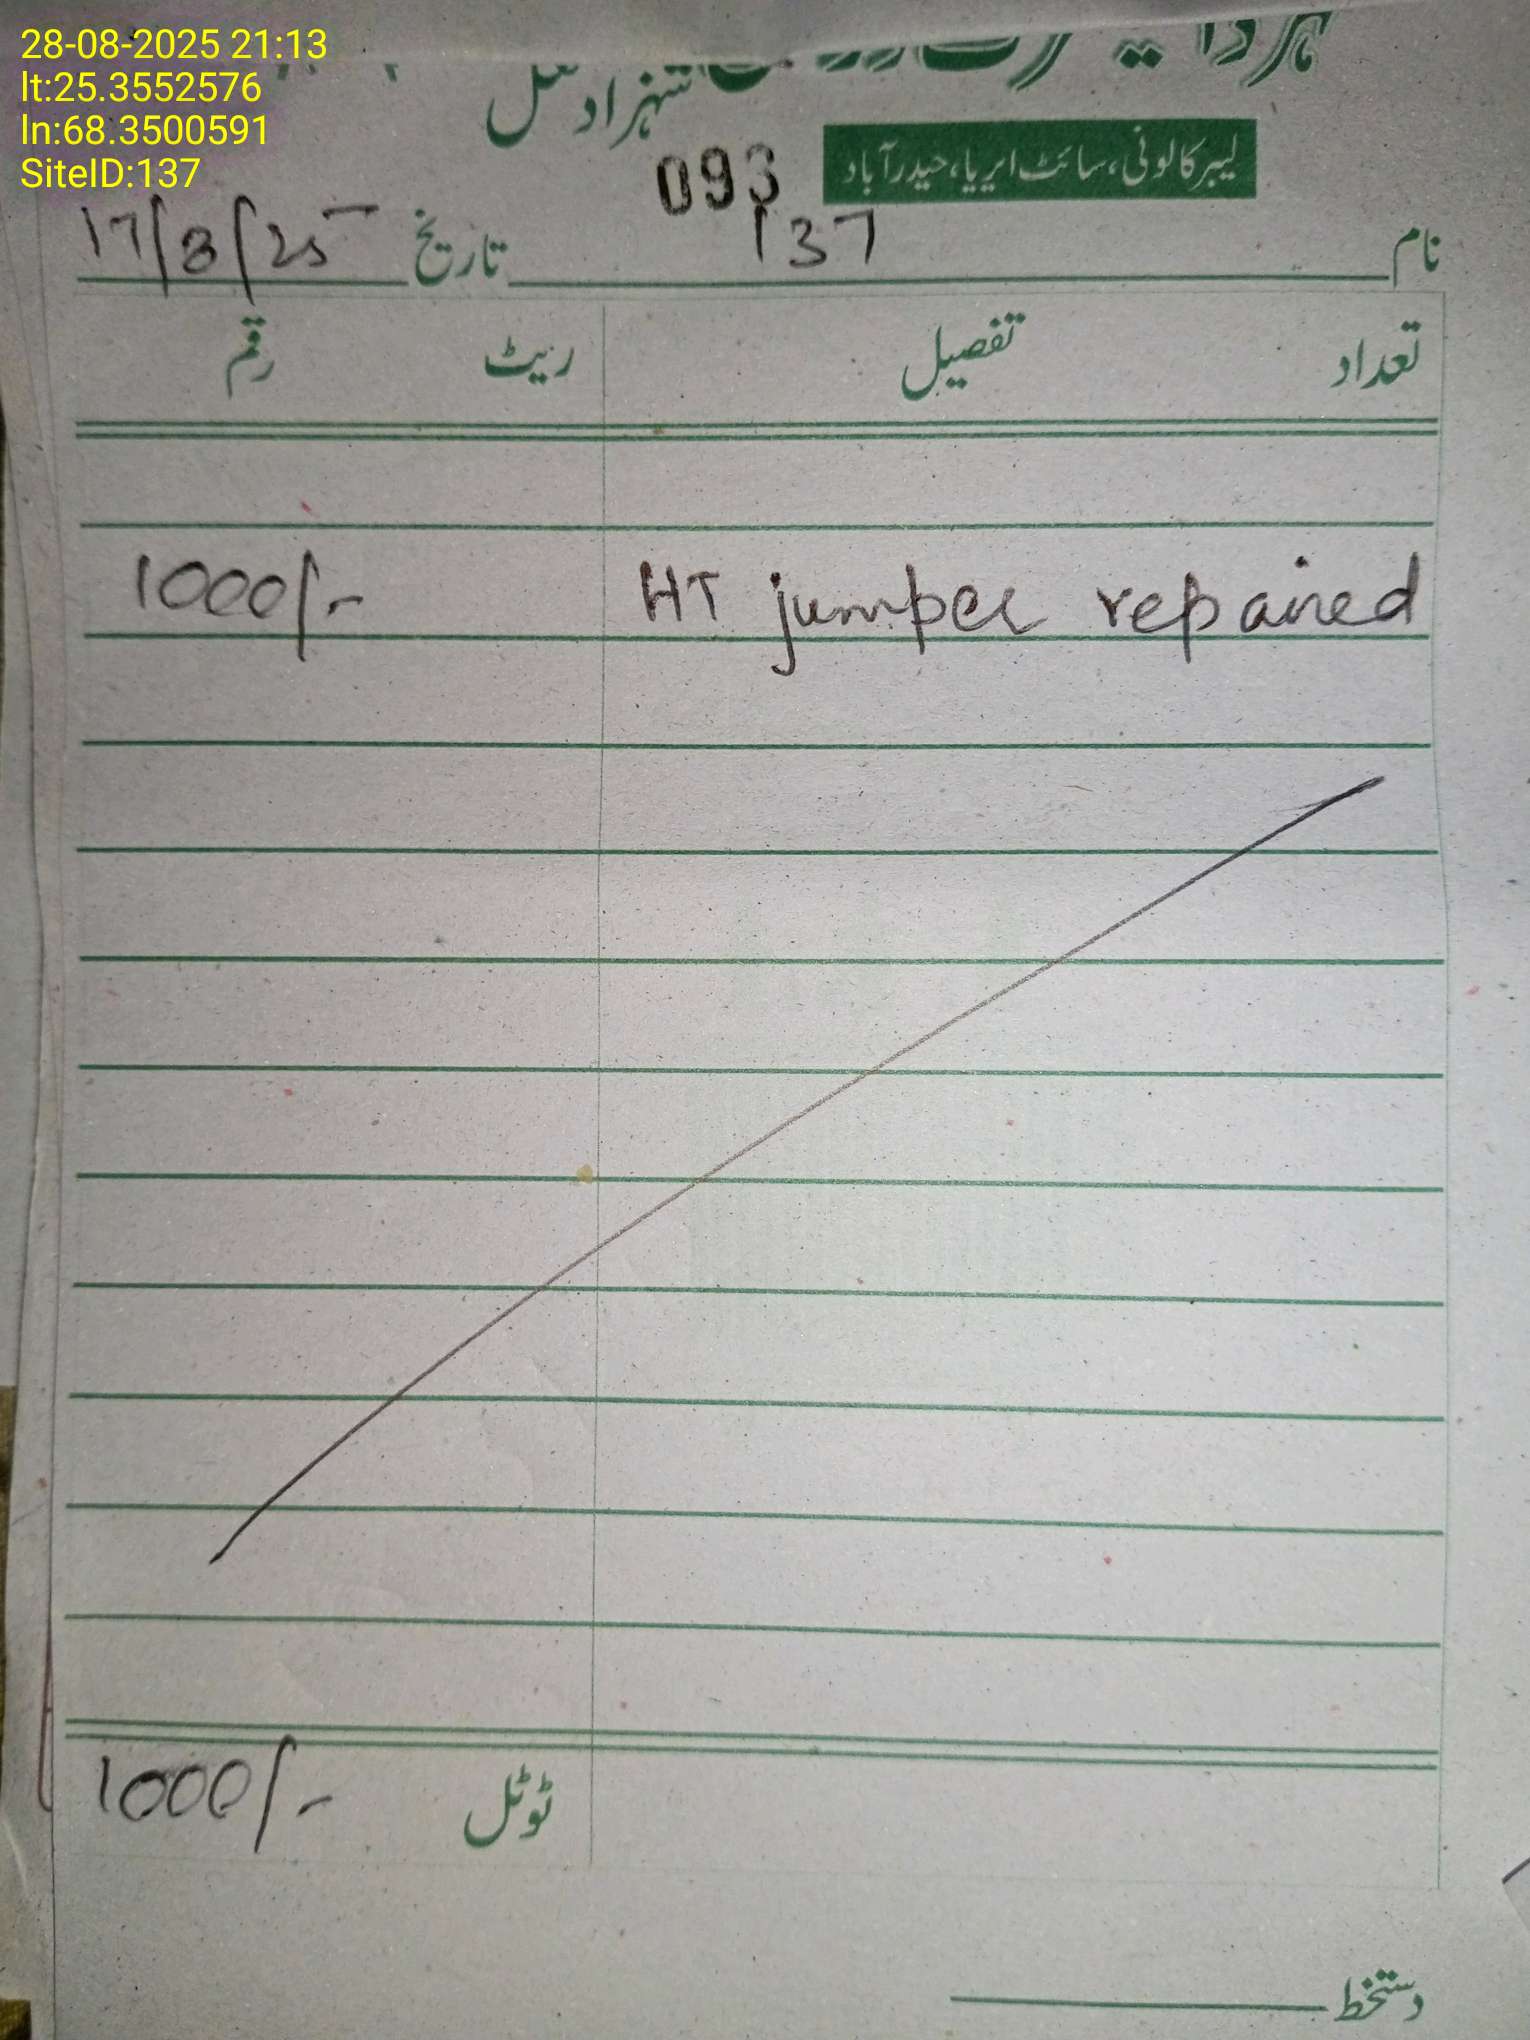 28-08-2025 21:13
lt:25.3552576
ln:68.3500591
SiteID:137
شہزاد
لیبر کالونی، سائٹ ایریا، حیدرآباد
093
نام 137 تاریخ 17/8/25
تعداد تفصیل ریٹ رقم
HT jumper repaired 1000/-
ٹوٹل 1000/-
دستخط